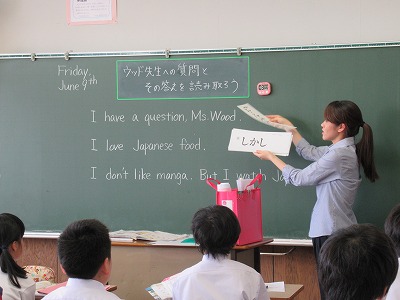 Friday
June 9th
ウッド先生への質問と
その答えを読み取ろう
I have a question, Ms. Wood.
I love Japanese food.
しかし
I don't like manga. But I watch Ja